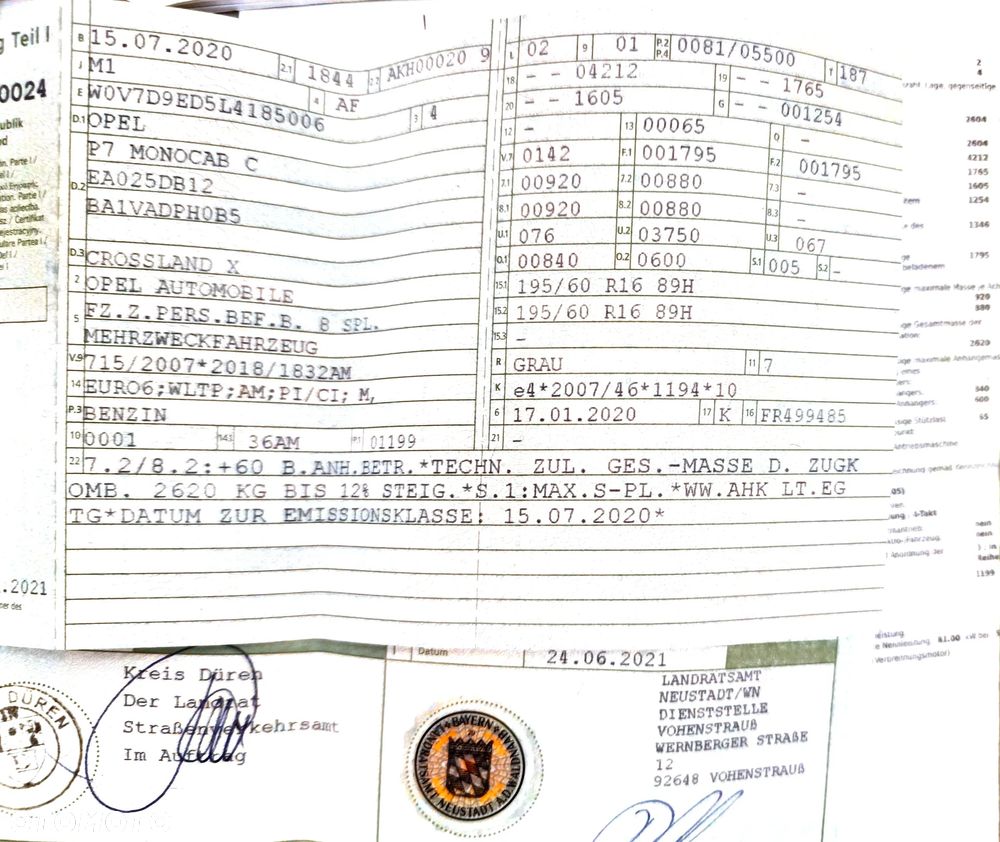 g Teil I
0024
B 15.07.2020 2.1 1844 2.2 AKH00020 9
J M1
E W0V7D9ED5L4185006 4 AF 3 4
D.1 OPEL
P7 MONOCAB C
D.2 EA025DB12
BA1VADPH0B5
D.3 CROSSLAND X
2 OPEL AUTOMOBILE
5 FZ.Z.PERS.BEF.B. 8 SPL.
MEHRZWECKFAHRZEUG
V.9 715/2007*2018/1832AM
14 EURO6;WLTP;AM;PI/CI; M,
P.3 BENZIN
10 0001 14.1 36AM P.1 01199
L 02 9 01 P.2 P.4 0081/05500 T 187
18 - - 04212 19 - - 1765
20 - - 1605 G - - 001254
12 - 13 00065 Q -
V.7 0142 F.1 001795 F.2 001795
7.1 00920 7.2 00880 7.3 -
8.1 00920 8.2 00880 8.3 -
U.1 076 U.2 03750 U.3 067
O.1 00840 O.2 0600 S.1 005 S.2 -
15.1 195/60 R16 89H
15.2 195/60 R16 89H
15.3 -
R GRAU 11 7
K e4*2007/46*1194*10
6 17.01.2020 17 K 16 FR499485
21 -
22 7.2/8.2:+60 B.ANH.BETR.*TECHN. ZUL. GES.-MASSE D. ZUGK
OMB. 2620 KG BIS 12% STEIG.*S.1:MAX.S-PL.*WW.AHK LT.EG
TG*DATUM ZUR EMISSIONSKLASSE: 15.07.2020*
.2021
2
4
2604
2604
4212
1765
1605
1254
1346
1795
920
880
2620
840
600
65
nein
nein
1199
Kreis Düren
Der Landrat
Straßenverkehrsamt
Im Auftrag
DÜREN
Datum 24.06.2021
BAYERN
LANDRATSAMT NEUSTADT A.D. WALDNAAB
LANDRATSAMT
NEUSTADT/WN
DIENSTSTELLE
VOHENSTRAUß
WERNBERGER STRAßE
12
92648 VOHENSTRAUß